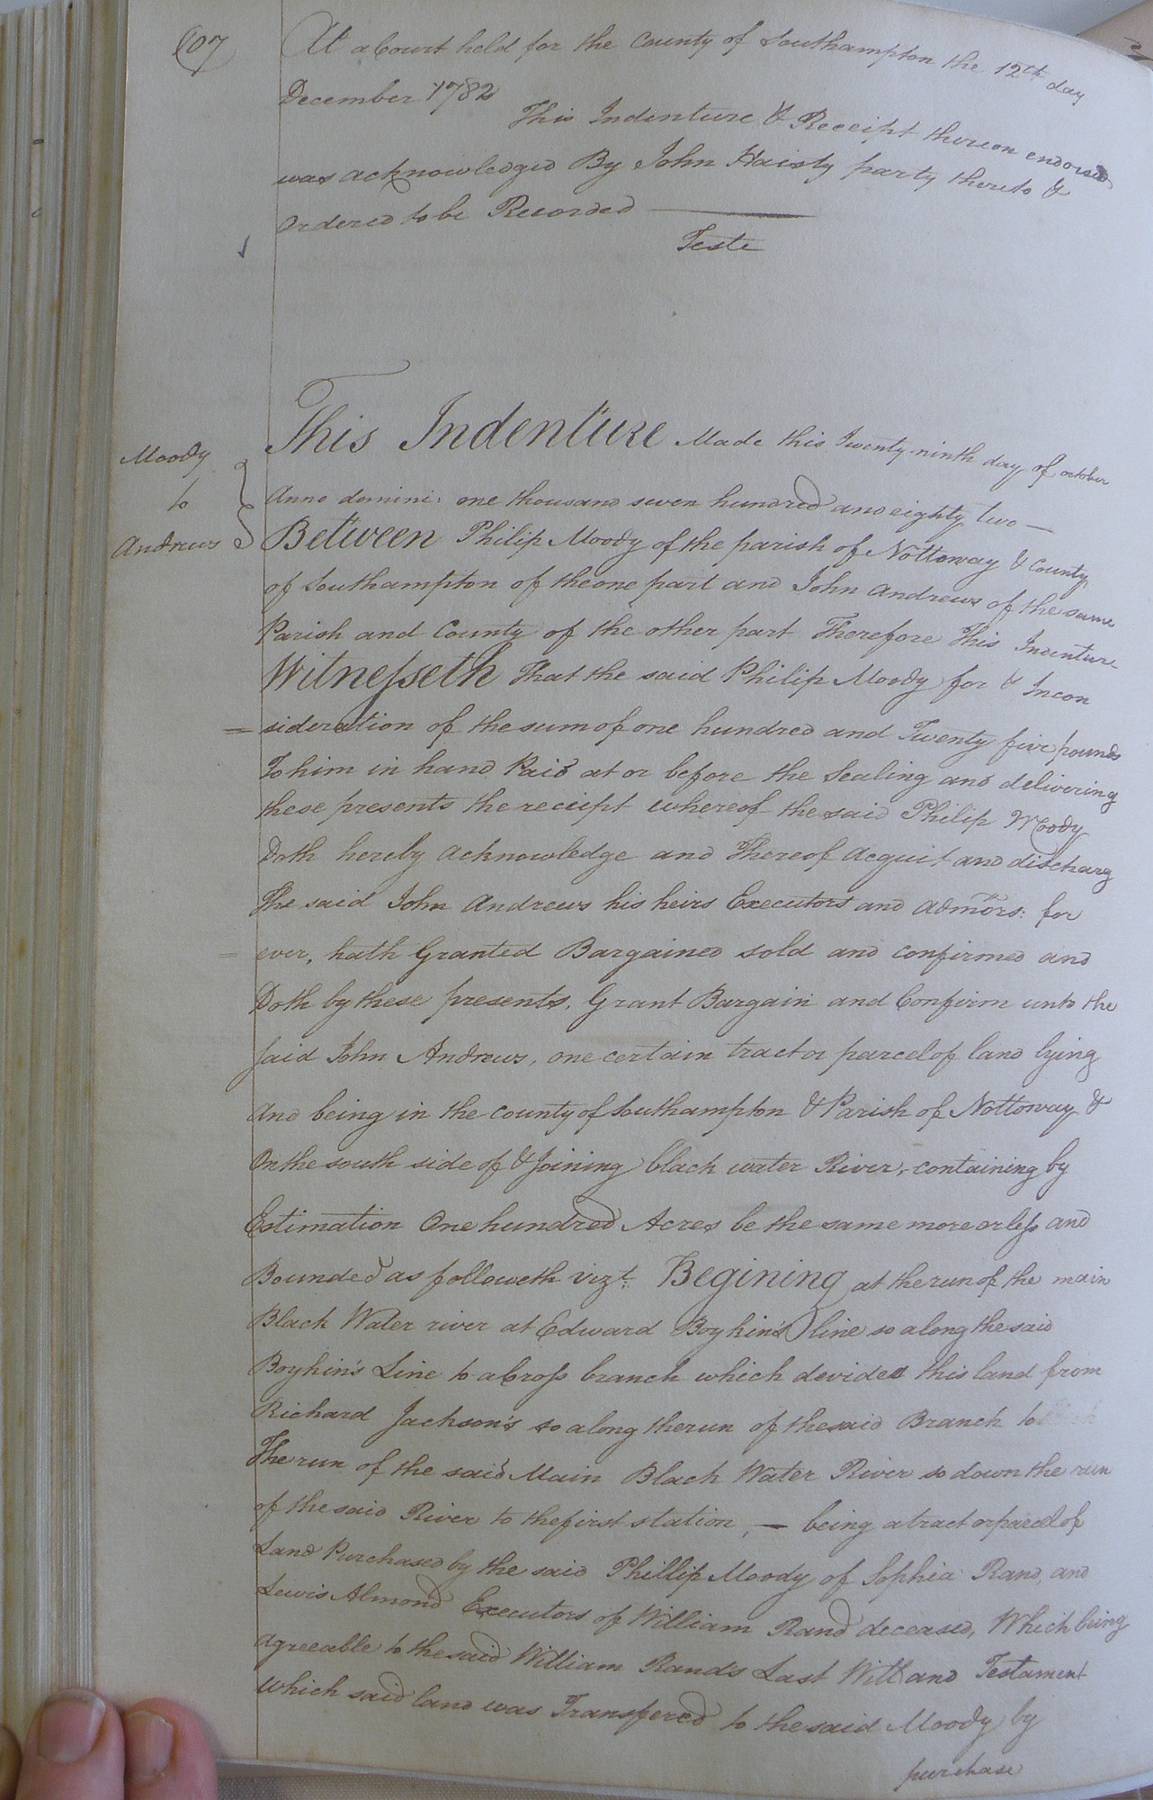 607
At a Court held for the County of Southampton the 12th day
December 1782
This Indenture & Receipt thereon endorsed
was acknowledged By John Haisty party thereto &
Ordered to be Recorded
Teste
This Indenture Made this Twenty ninth day of october
Moody
to
Andrews
Anno domini: one thousand seven hundred and eighty two —
Between Philip Moody of the parish of Nottoway & County
of Southampton of the one part and John Andrews of the same
Parish and County of the other part Therefore This Indenture
Witnesseth That the said Philip Moody for & Incon
= sideration of the sum of one hundred and Twenty five pounds
To him in hand Paid at or before the Sealing and delivering
these presents the reciept whereof the said Philip Moody
Doth hereby acknowledge and Thereof Acquit and discharg
The said John Andrews his heirs Executors and Admors: for
= ever, hath Granted Bargained sold and confirmed and
Doth by these presents, Grant Bargain and Confirm unto the
said John Andrews, one certain tract or parcel of land lying
And being in the county of Southampton & Parish of Nottoway &
On the south side of & Joining black water River, containing by
Estimation One hundred Acres be the same more or less and
Bounded as followeth vizt: Begining at the run of the main
Black Water river at Edward Boykin's line so along the said
Boykin's Line to a Cross branch which devides this land from
Richard Jackson's so along the run of the said Branch to
The run of the said Main Black Water River so down the run
of the said River to the first station, — being a tract or parcel of
Land Purchased by the said Phillip Moody of Sophia Rand, and
Lewis Almond Executors of William Rand deceased, Which being
agreeable to the said William Rands Last Will and Testament
Which said land was Transfered to the said Moody by
purchase